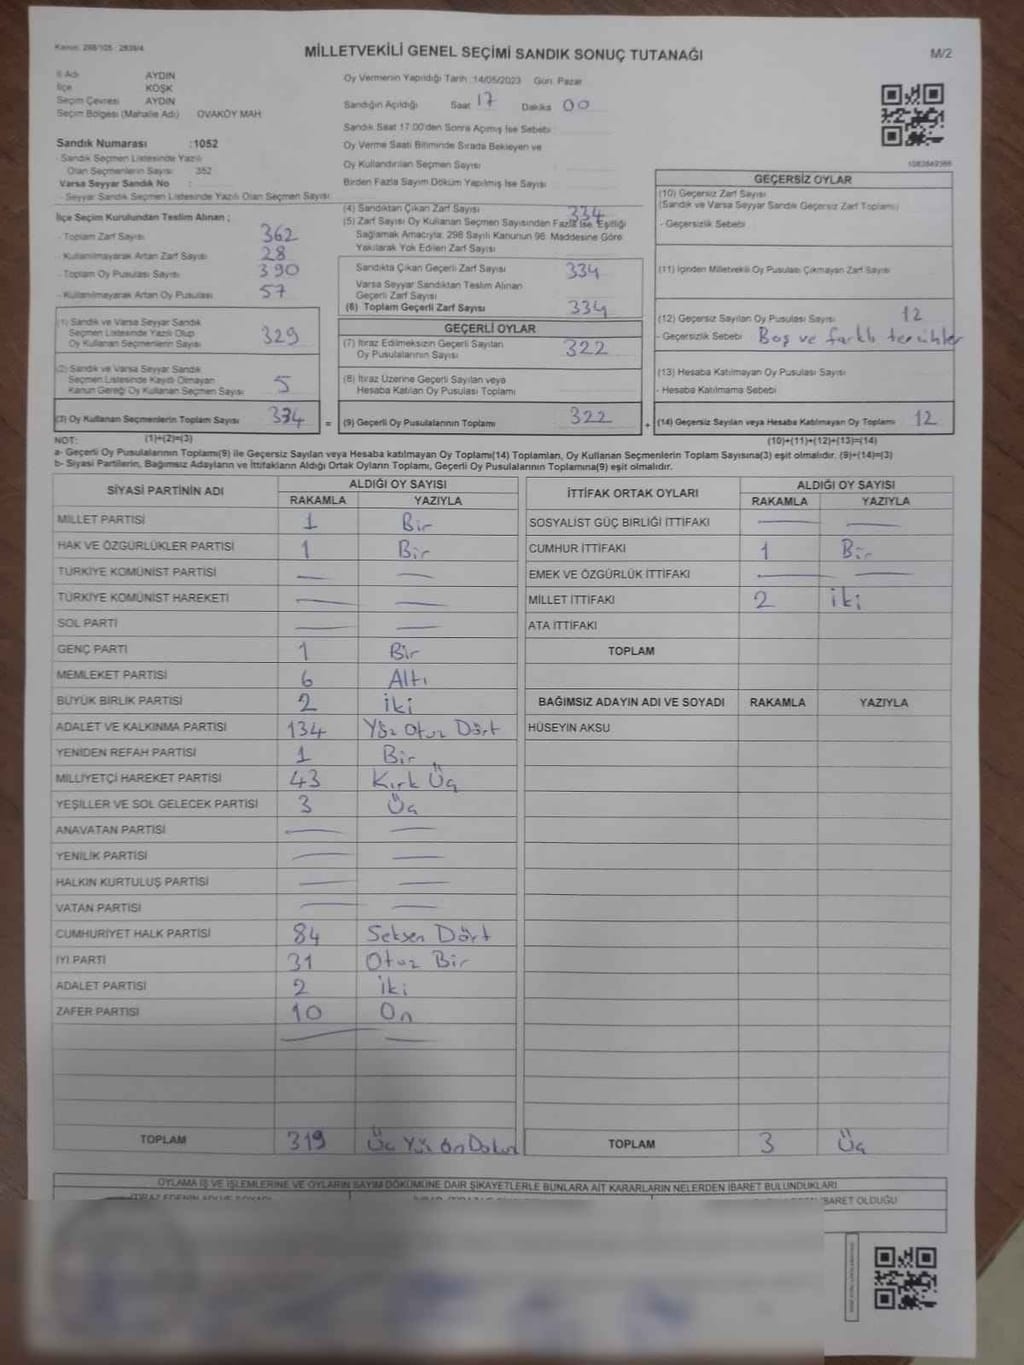 Kanun: 298/105 : 2839/4
MİLLETVEKİLİ GENEL SEÇİMİ SANDIK SONUÇ TUTANAĞI
M/2
İl Adı AYDIN
İlçe KÖŞK
Seçim Çevresi AYDIN
Seçim Bölgesi (Mahalle Adı) OVAKÖY MAH
Oy Vermenin Yapıldığı Tarih :14/05/2023 Gün: Pazar
Sandığın Açıldığı Saat 17 Dakika 00
Sandık Saat 17:00'den Sonra Açılmış İse Sebebi
Oy Verme Saati Bitiminde Sırada Bekleyen ve
Oy Kullandırılan Seçmen Sayısı
Birden Fazla Sayım Döküm Yapılmış İse Sayısı
Sandık Numarası :1052
- Sandık Seçmen Listesinde Yazılı
Olan Seçmenlerin Sayısı 352
Varsa Seyyar Sandık No :
- Seyyar Sandık Seçmen Listesinde Yazılı Olan Seçmen Sayısı
İlçe Seçim Kurulundan Teslim Alınan ;
- Toplam Zarf Sayısı 362
- Kullanılmayarak Artan Zarf Sayısı 28
- Toplam Oy Pusulası Sayısı 390
- Kullanılmayarak Artan Oy Pusulası 57
(1) Sandık ve Varsa Seyyar Sandık
Seçmen Listesinde Yazılı Olup
Oy Kullanan Seçmenlerin Sayısı 329
(2) Sandık ve Varsa Seyyar Sandık
Seçmen Listesinde Kayıtlı Olmayan
Kanun Gereği Oy Kullanan Seçmen Sayısı 5
(3) Oy Kullanan Seçmenlerin Toplam Sayısı 334
(4) Sandıktan Çıkan Zarf Sayısı 334
(5) Zarf Sayısı Oy Kullanan Seçmen Sayısından Fazla İse, Eşitliği
Sağlamak Amacıyla; 298 Sayılı Kanunun 98. Maddesine Göre
Yakılarak Yok Edilen Zarf Sayısı
Sandıkta Çıkan Geçerli Zarf Sayısı 334
Varsa Seyyar Sandıktan Teslim Alınan
Geçerli Zarf Sayısı
(6) Toplam Geçerli Zarf Sayısı 334
GEÇERLİ OYLAR
(7) İtiraz Edilmeksizin Geçerli Sayılan
Oy Pusulalarının Sayısı 322
(8) İtiraz Üzerine Geçerli Sayılan veya
Hesaba Katılan Oy Pusulası Toplamı
= (9) Geçerli Oy Pusulalarının Toplamı 322
1083849366
GEÇERSİZ OYLAR
(10) Geçersiz Zarf Sayısı
(Sandık ve Varsa Seyyar Sandık Geçersiz Zarf Toplamı)
- Geçersizlik Sebebi
(11) İçinden Milletvekili Oy Pusulası Çıkmayan Zarf Sayısı
(12) Geçersiz Sayılan Oy Pusulası Sayısı 12
- Geçersizlik Sebebi Boş ve farklı tercihler
(13) Hesaba Katılmayan Oy Pusulası Sayısı
- Hesaba Katılmama Sebebi
+ (14) Geçersiz Sayılan veya Hesaba Katılmayan Oy Toplamı 12
NOT: (1)+(2)=(3) (10)+(11)+(12)+(13)=(14)
a- Geçerli Oy Pusulalarının Toplamı(9) ile Geçersiz Sayılan veya Hesaba katılmayan Oy Toplamı(14) Toplamları, Oy Kullanan Seçmenlerin Toplam Sayısına(3) eşit olmalıdır. (9)+(14)=(3)
b- Siyasi Partilerin, Bağımsız Adayların ve İttifakların Aldığı Ortak Oyların Toplamı, Geçerli Oy Pusulalarının Toplamına(9) eşit olmalıdır.
SİYASİ PARTİNİN ADI ALDIĞI OY SAYISI
RAKAMLA YAZIYLA
MİLLET PARTİSİ 1 Bir
HAK VE ÖZGÜRLÜKLER PARTİSİ 1 Bir
TÜRKİYE KOMÜNİST PARTİSİ — —
TÜRKİYE KOMÜNİST HAREKETİ — —
SOL PARTİ — —
GENÇ PARTİ 1 Bir
MEMLEKET PARTİSİ 6 Altı
BÜYÜK BİRLİK PARTİSİ 2 iki
ADALET VE KALKINMA PARTİSİ 134 Yüz Otuz Dört
YENİDEN REFAH PARTİSİ 1 Bir
MİLLİYETÇİ HAREKET PARTİSİ 43 Kırk Üç
YEŞİLLER VE SOL GELECEK PARTİSİ 3 Üç
ANAVATAN PARTİSİ — —
YENİLİK PARTİSİ — —
HALKIN KURTULUŞ PARTİSİ — —
VATAN PARTİSİ — —
CUMHURİYET HALK PARTİSİ 84 Seksen Dört
İYİ PARTİ 31 Otuz Bir
ADALET PARTİSİ 2 iki
ZAFER PARTİSİ 10 On
— —
TOPLAM 319 Üç Yüz On Dokuz
İTTİFAK ORTAK OYLARI ALDIĞI OY SAYISI
RAKAMLA YAZIYLA
SOSYALİST GÜÇ BİRLİĞİ İTTİFAKI — —
CUMHUR İTTİFAKI 1 Bir
EMEK VE ÖZGÜRLÜK İTTİFAKI — —
MİLLET İTTİFAKI 2 iki
ATA İTTİFAKI
TOPLAM
BAĞIMSIZ ADAYIN ADI VE SOYADI RAKAMLA YAZIYLA
HÜSEYİN AKSU
TOPLAM 3 Üç
OYLAMA İŞ VE İŞLEMLERİNE VE OYLARIN SAYIM DÖKÜMÜNE DAİR ŞİKAYETLERLE BUNLARA AİT KARARLARIN NELERDEN İBARET BULUNDUKLARI
İTİRAZ EDENİN ADI VE SOYADI
İBARET OLDUĞU